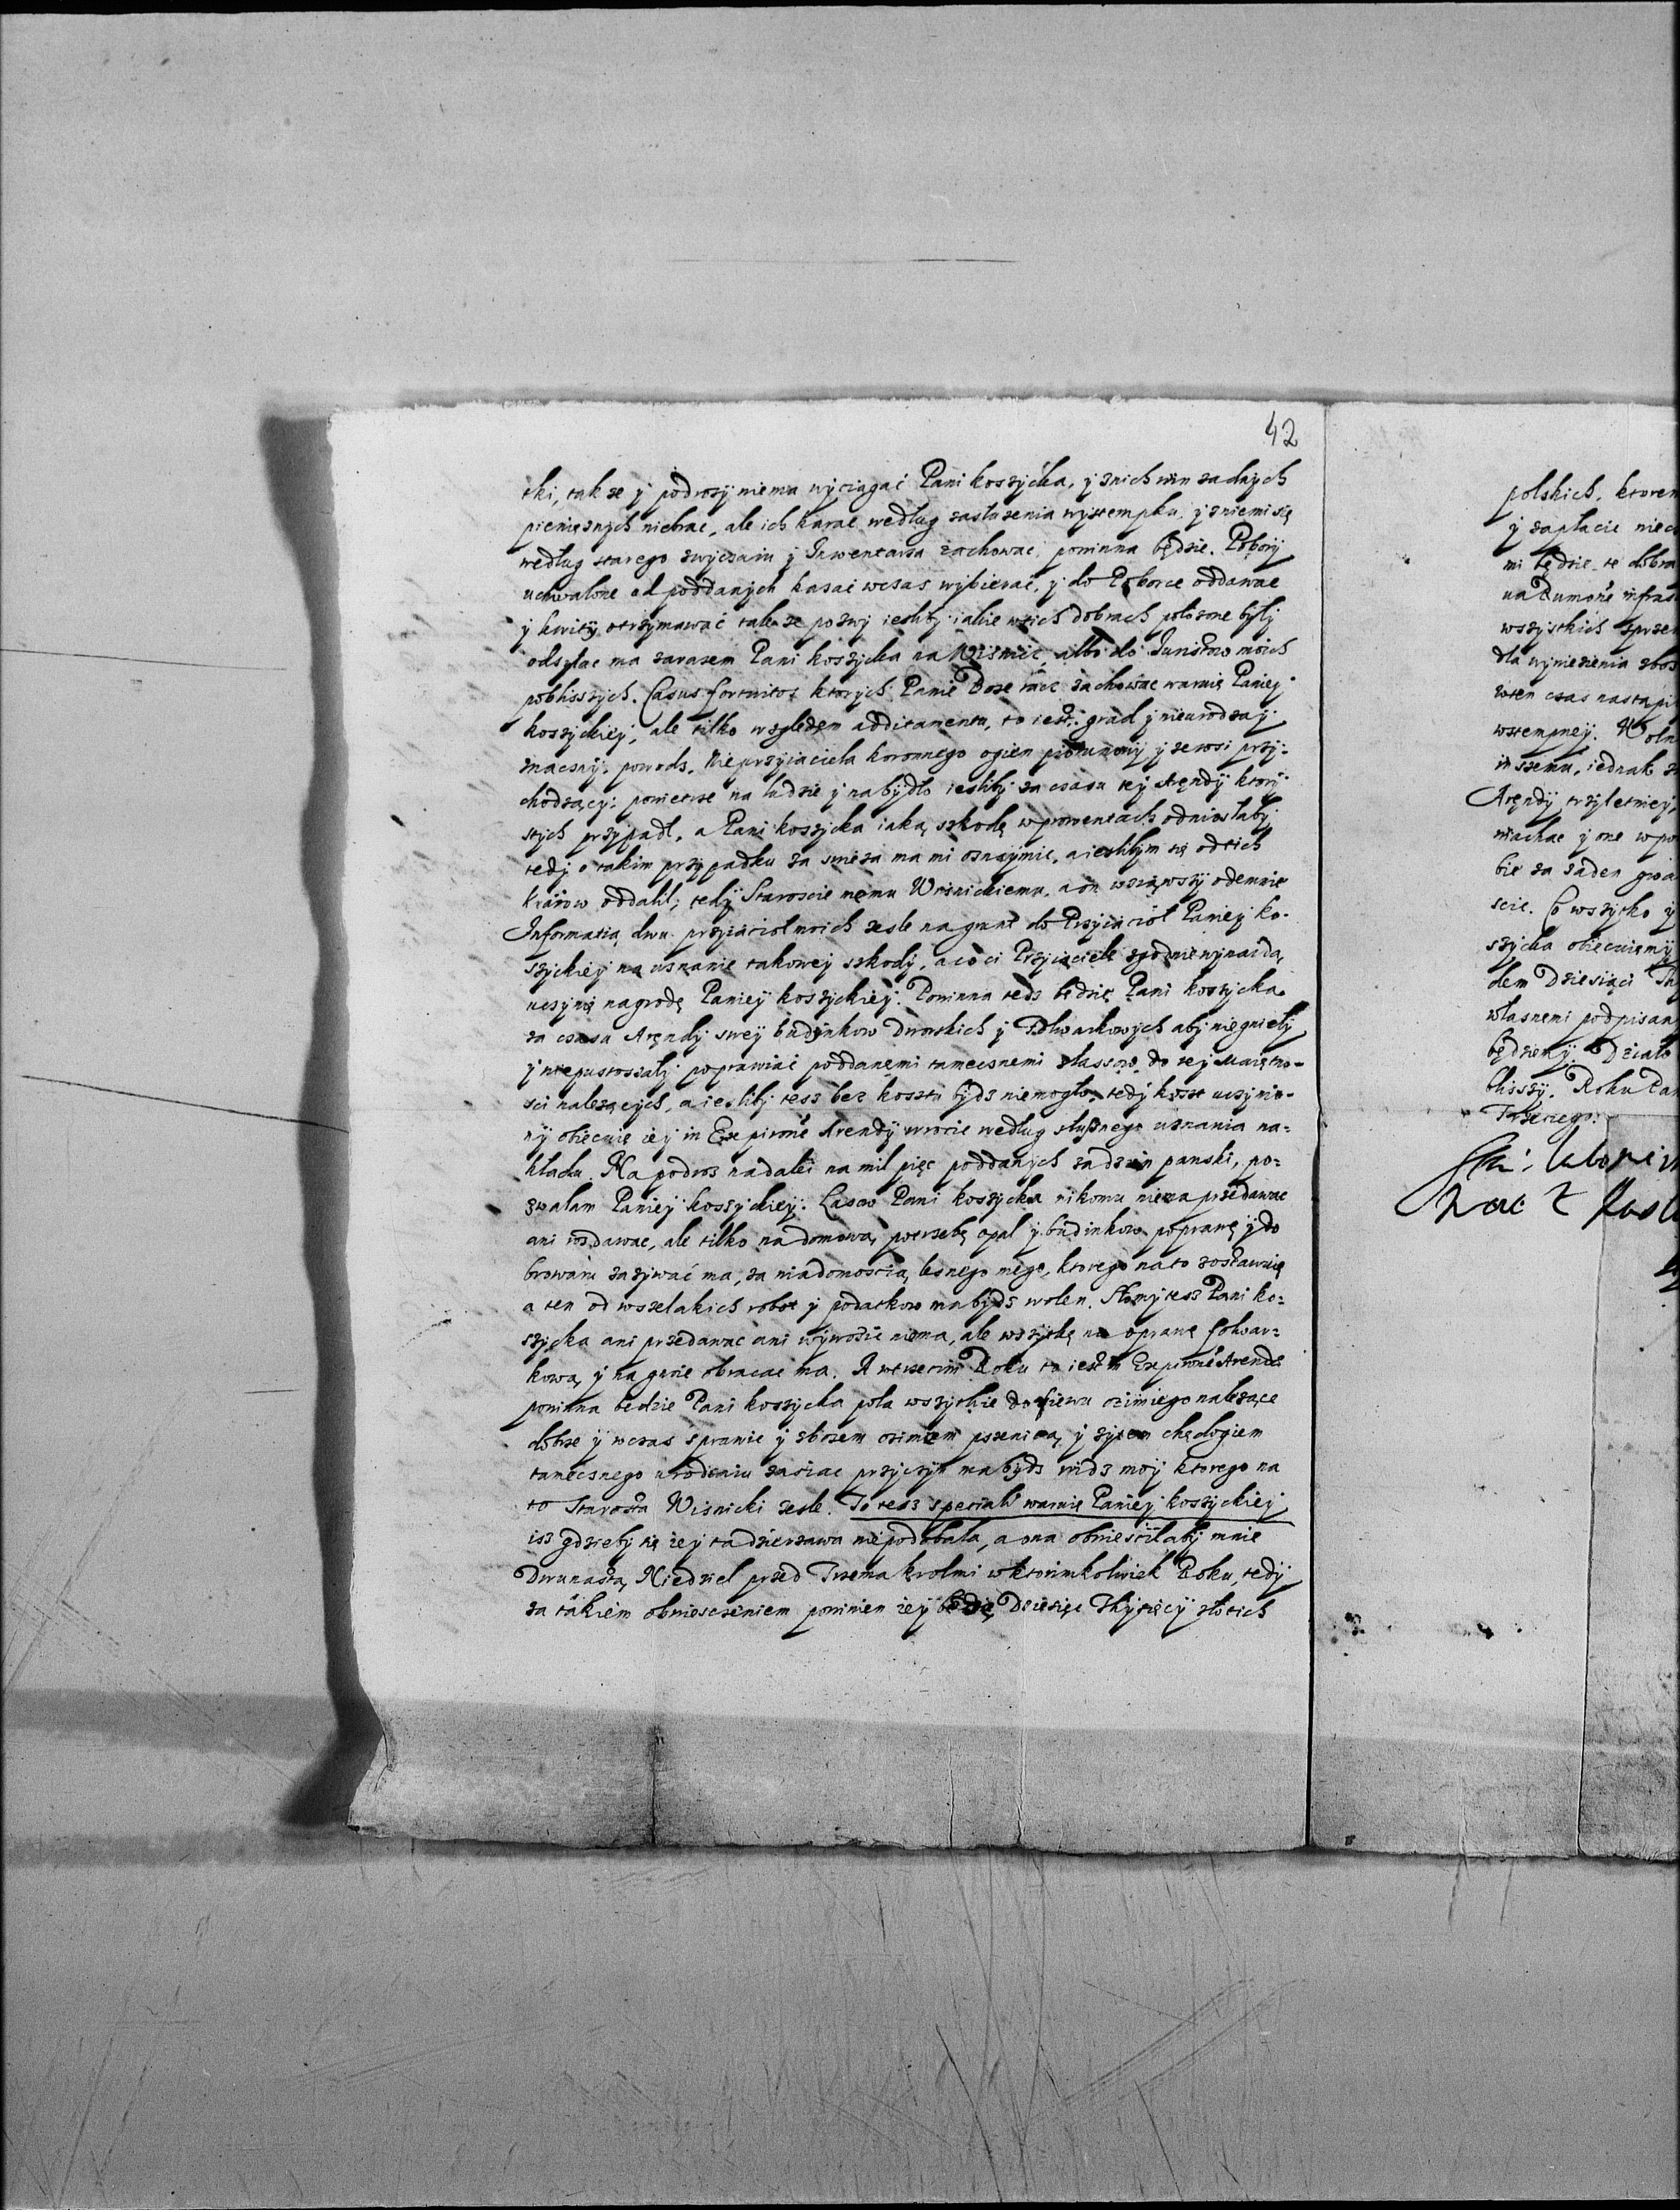 42
tki, takze ÿ podwozÿ niema wÿciągać Pani koszÿcka, ÿ znich win zadnÿch
pienięznÿch niebrac, ale ich karac według zasłuzenia wÿstempku, ÿ zniemi się
według starego zwÿczaiu ÿ Inwentarza zachowac powinna będzie. Poborÿ
uchwalone od poddanÿch kazać wczas wÿbierać, ÿ do Poborce oddawac
ÿ kwitÿ otrzÿmawać takze pozwÿ iesliby iakie wtich dobrach połozone bÿlÿ
odsÿłac ma zarazem Pani koszÿcka na Wisnicz, albo do Juristow moich
pobliszszÿch. Casus fortuitos ktorÿch Panie Boze racz zachować waruię Panieÿ
koszÿckieÿ, ale tilko względem additamentu, to iest: grad ÿ nieurodzaÿ
znacznÿ, powodz, Nieprzÿiaciela koronnego ogien piorunowÿ ÿ zewsi przÿ-
chodzącÿ: powietrze na ludzie ÿ nabÿdło iesliby za czasu teÿ Arendÿ ktorÿ
ztÿch przÿpadł, a Pani koszÿcka iaką szkodę wprowentach odniosłabÿ
tedÿ o takim przÿpadku za swieza ma mi oznaÿmic, a iesliбym się odtich
kraiow oddalił; tedÿ Staroscie memu Wisnickiemu, a on wziąwszÿ odemnie
Informatią dwu przÿiaciol moich zesle na grunt do Przÿiaciół Panieÿ ko-
szÿckieÿ na uznanie takoweÿ szkodÿ, a co ci Przÿiaciele zgodnie wÿnaidą
uczÿnię nagrodę Panieÿ koszÿckieÿ. Powinna tedz będzie Pani koszÿcka
za czasu Arendÿ sweÿ budÿnkow Dworskich ÿ Folwarkowÿch abÿ niegniełÿ
ÿ niepustoszałÿ poprawiać poddanemi tamecznemi zlassow do teÿ Maiętno-
sci nalezącÿch, a iesliby tesz bez kosztu bÿdz niemogło, tedÿ koszt uczÿnio-
nÿ obiecuię ieÿ in Expiroñe Arendÿ wrocic według słusznego uznania na-
kładu. Na podwoz nadaleÿ na mil pięc poddanÿch za dzien panski, po-
zwalam Panieÿ koszÿckieÿ. Lasow Pani koszÿcka nikomu niema przedawac
ani rozdawac, ale tilko na domową potrzebę opał ÿ budinkow poprawę ÿ do
browaru zazÿwać ma, za wiadomoscią lesnego mego, ktorego na to zostawuię
a ten od wszelakich robot ÿ podatkow ma bÿdz wolen. Słomÿ tesz Pani ko-
szÿcka ani przedawac ani wÿwozic niema, ale wszÿtkę na oprawę folwar-
kową ÿ na gnoie obracac ma. A wtrzecim Roku to iest in Expiroñe Arendę
powinna bedzie Pani koszÿcka pola wszÿtkie do siewu ozimiego nalezące
dobrze ÿ wczas sprawic ÿ zbozem ozimiem pszenicą, ÿ zÿtem chędogiem
tamecznego urodzaiu zasiac przÿczÿm ma bÿdz widz moÿ ktorego na
to Starosta Wisnicki zesle. To tesz specialiť waruię Panieÿ koszÿckieÿ
isz gdziebÿ się ieÿ ta dzierzawa niepodobała, a ona obwiesciłabÿ mnie
Dwunastą Niedziel przed Trzema krolmi wktorimkolwiek Roku, tedÿ
za takiem obwiesczeniem powinien ieÿ będę Dziesięc Thÿsięcÿ złotich
polskich, ktoren
ÿ zapłacic
mi będzie te dobra
wszÿstkich
dla wÿniesienia zboz
wten czas nastąpi
wstempneÿ. Woln
inszemu, iednak
Arendÿ trzÿletnieÿ
ÿ one
bie za zaden
scie. Co wszÿtko ÿ
szÿcka obiecuiemÿ
dem Dziesiąci
własnemi podpisan
będziemÿ. Działo
bliszszÿ. Roku Pan
Trzeciego.